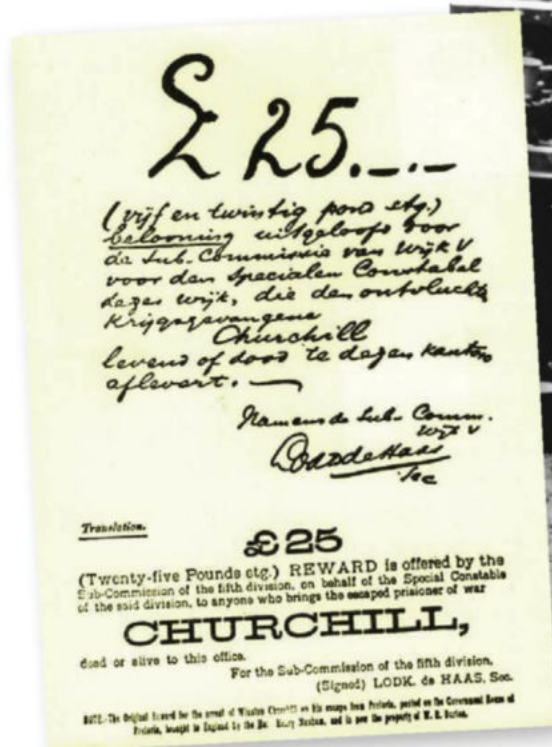 £ 25.–.–
(vijf en twintig pond stg.)
belooning uitgeloofd door
de Sub-Commissie van Wijk V
voor den specialen Constabel
dezer wijk, die den ontvluchte
Krijgsgevangene
Churchill
levend of dood te dezen kantore
aflevert.—
Namens de Sub-Comm.
Wijk V
Lodk de Haas
Sec
Translation.
£25
(Twenty-five Pounds stg.) REWARD is offered by the
Sub-Commission of the fifth division, on behalf of the Special Constable
of the said division, to anyone who brings the escaped prisioner of war
CHURCHILL,
dead or alive to this office.
For the Sub-Commission of the fifth division,
(Signed) LODK. de HAAS, Sec.
NOTE.-The Original Reward for the arrest of Winston Churchill on his escape from Pretoria, posted on the Government House at
Pretoria, brought to England by the Hon. Henry Masham, and is now the property of W. R. Burton.